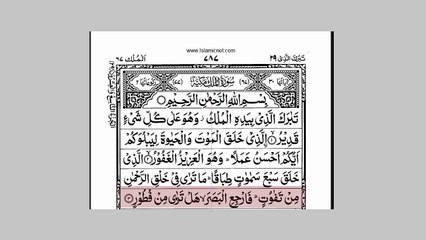 www.Islamicnet.com
تَبٰرَكَ الَّذِیْ ٢٩
٧٨٧
اَلْمُلْك ٦٧
بِسْمِ اللّٰهِ الرَّحْمٰنِ الرَّحِیْمِ
تَبٰرَكَ الَّذِیْ بِیَدِهِ الْمُلْكُ وَهُوَ عَلٰی كُلِّ شَیْءٍ
قَدِیْرُ ۙ﴿١﴾ الَّذِیْ خَلَقَ الْمَوْتَ وَالْحَیٰوةَ لِیَبْلُوَكُمْ
اَیُّكُمْ اَحْسَنُ عَمَلًا ؕ وَهُوَ الْعَزِیْزُ الْغَفُوْرُ ۙ﴿٢﴾ الَّذِیْ
خَلَقَ سَبْعَ سَمٰوٰتٍ طِبَاقًا ؕ مَا تَرٰی فِیْ خَلْقِ الرَّحْمٰنِ
مِنْ تَفٰوُتٍ ؕ فَارْجِعِ الْبَصَرَ ۙ هَلْ تَرٰی مِنْ فُطُوْرٍ ﴿٣﴾